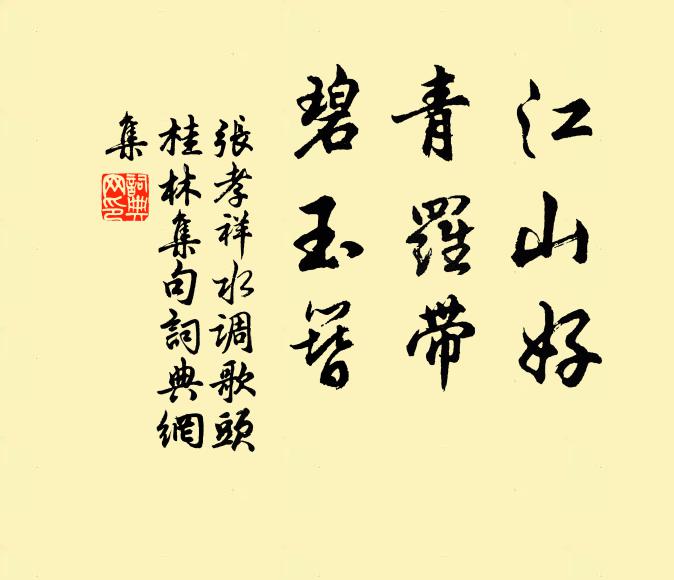 江山好
青羅帶
碧玉簪
張孝祥水调歌頭
桂林集句詞典網
集
詞典
网印